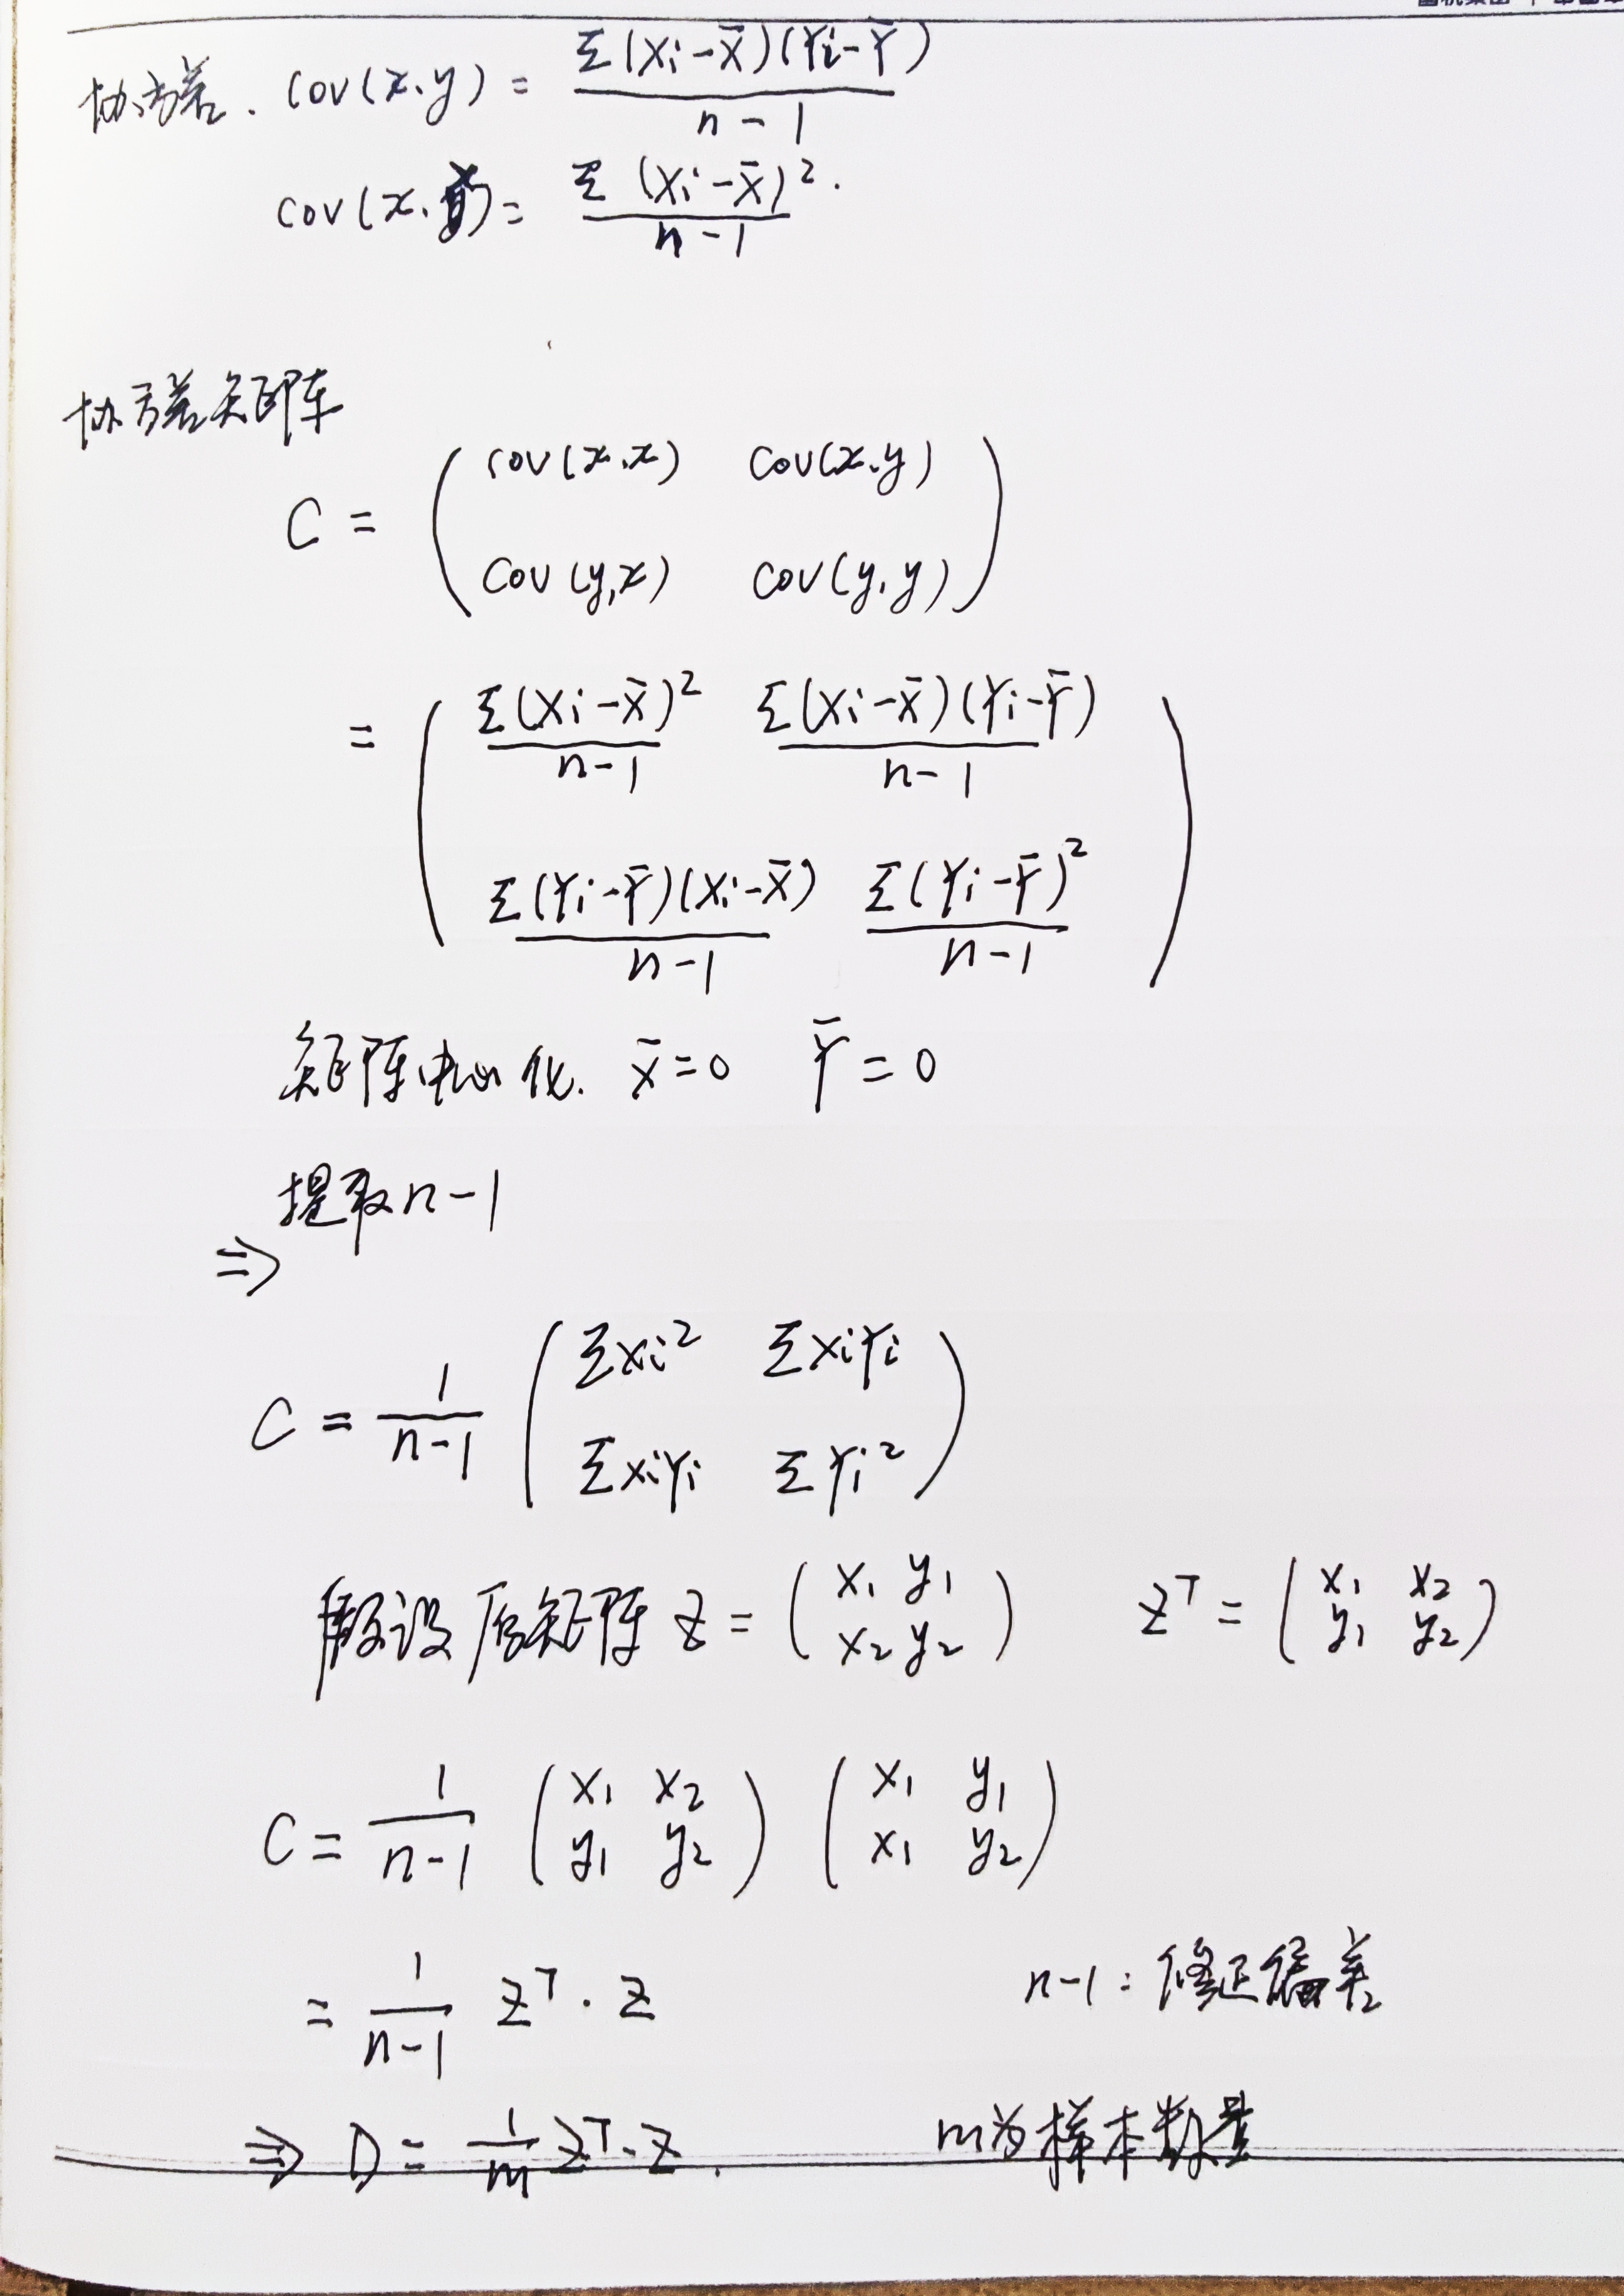 协方差. cov(x,y) = Σ(Xi-X̄)(Yi-Ȳ) / n-1
cov(x,x) = Σ(Xi-X̄)² / n-1.
协方差矩阵
C = ( cov(x,x) cov(x,y)
cov(y,x) cov(y,y) )
= ( Σ(Xi-X̄)² / n-1 Σ(Xi-X̄)(Yi-Ȳ) / n-1
Σ(Yi-Ȳ)(Xi-X̄) / n-1 Σ(Yi-Ȳ)² / n-1 )
矩阵中心化. X̄=0 Ȳ=0
提取n-1
⇒
C = 1 / n-1 ( Σxi² ΣxiYi
ΣxiYi ΣYi² )
假设原矩阵 Z = ( x₁ y₁
x₂ y₂ ) Zᵀ = ( x₁ x₂
y₁ y₂ )
C = 1 / n-1 ( x₁ x₂
y₁ y₂ ) ( x₁ y₁
x₁ y₂ )
= 1 / n-1 Zᵀ · Z n-1: 修正偏差
⇒ D = 1 / m Zᵀ · Z. m为样本数量